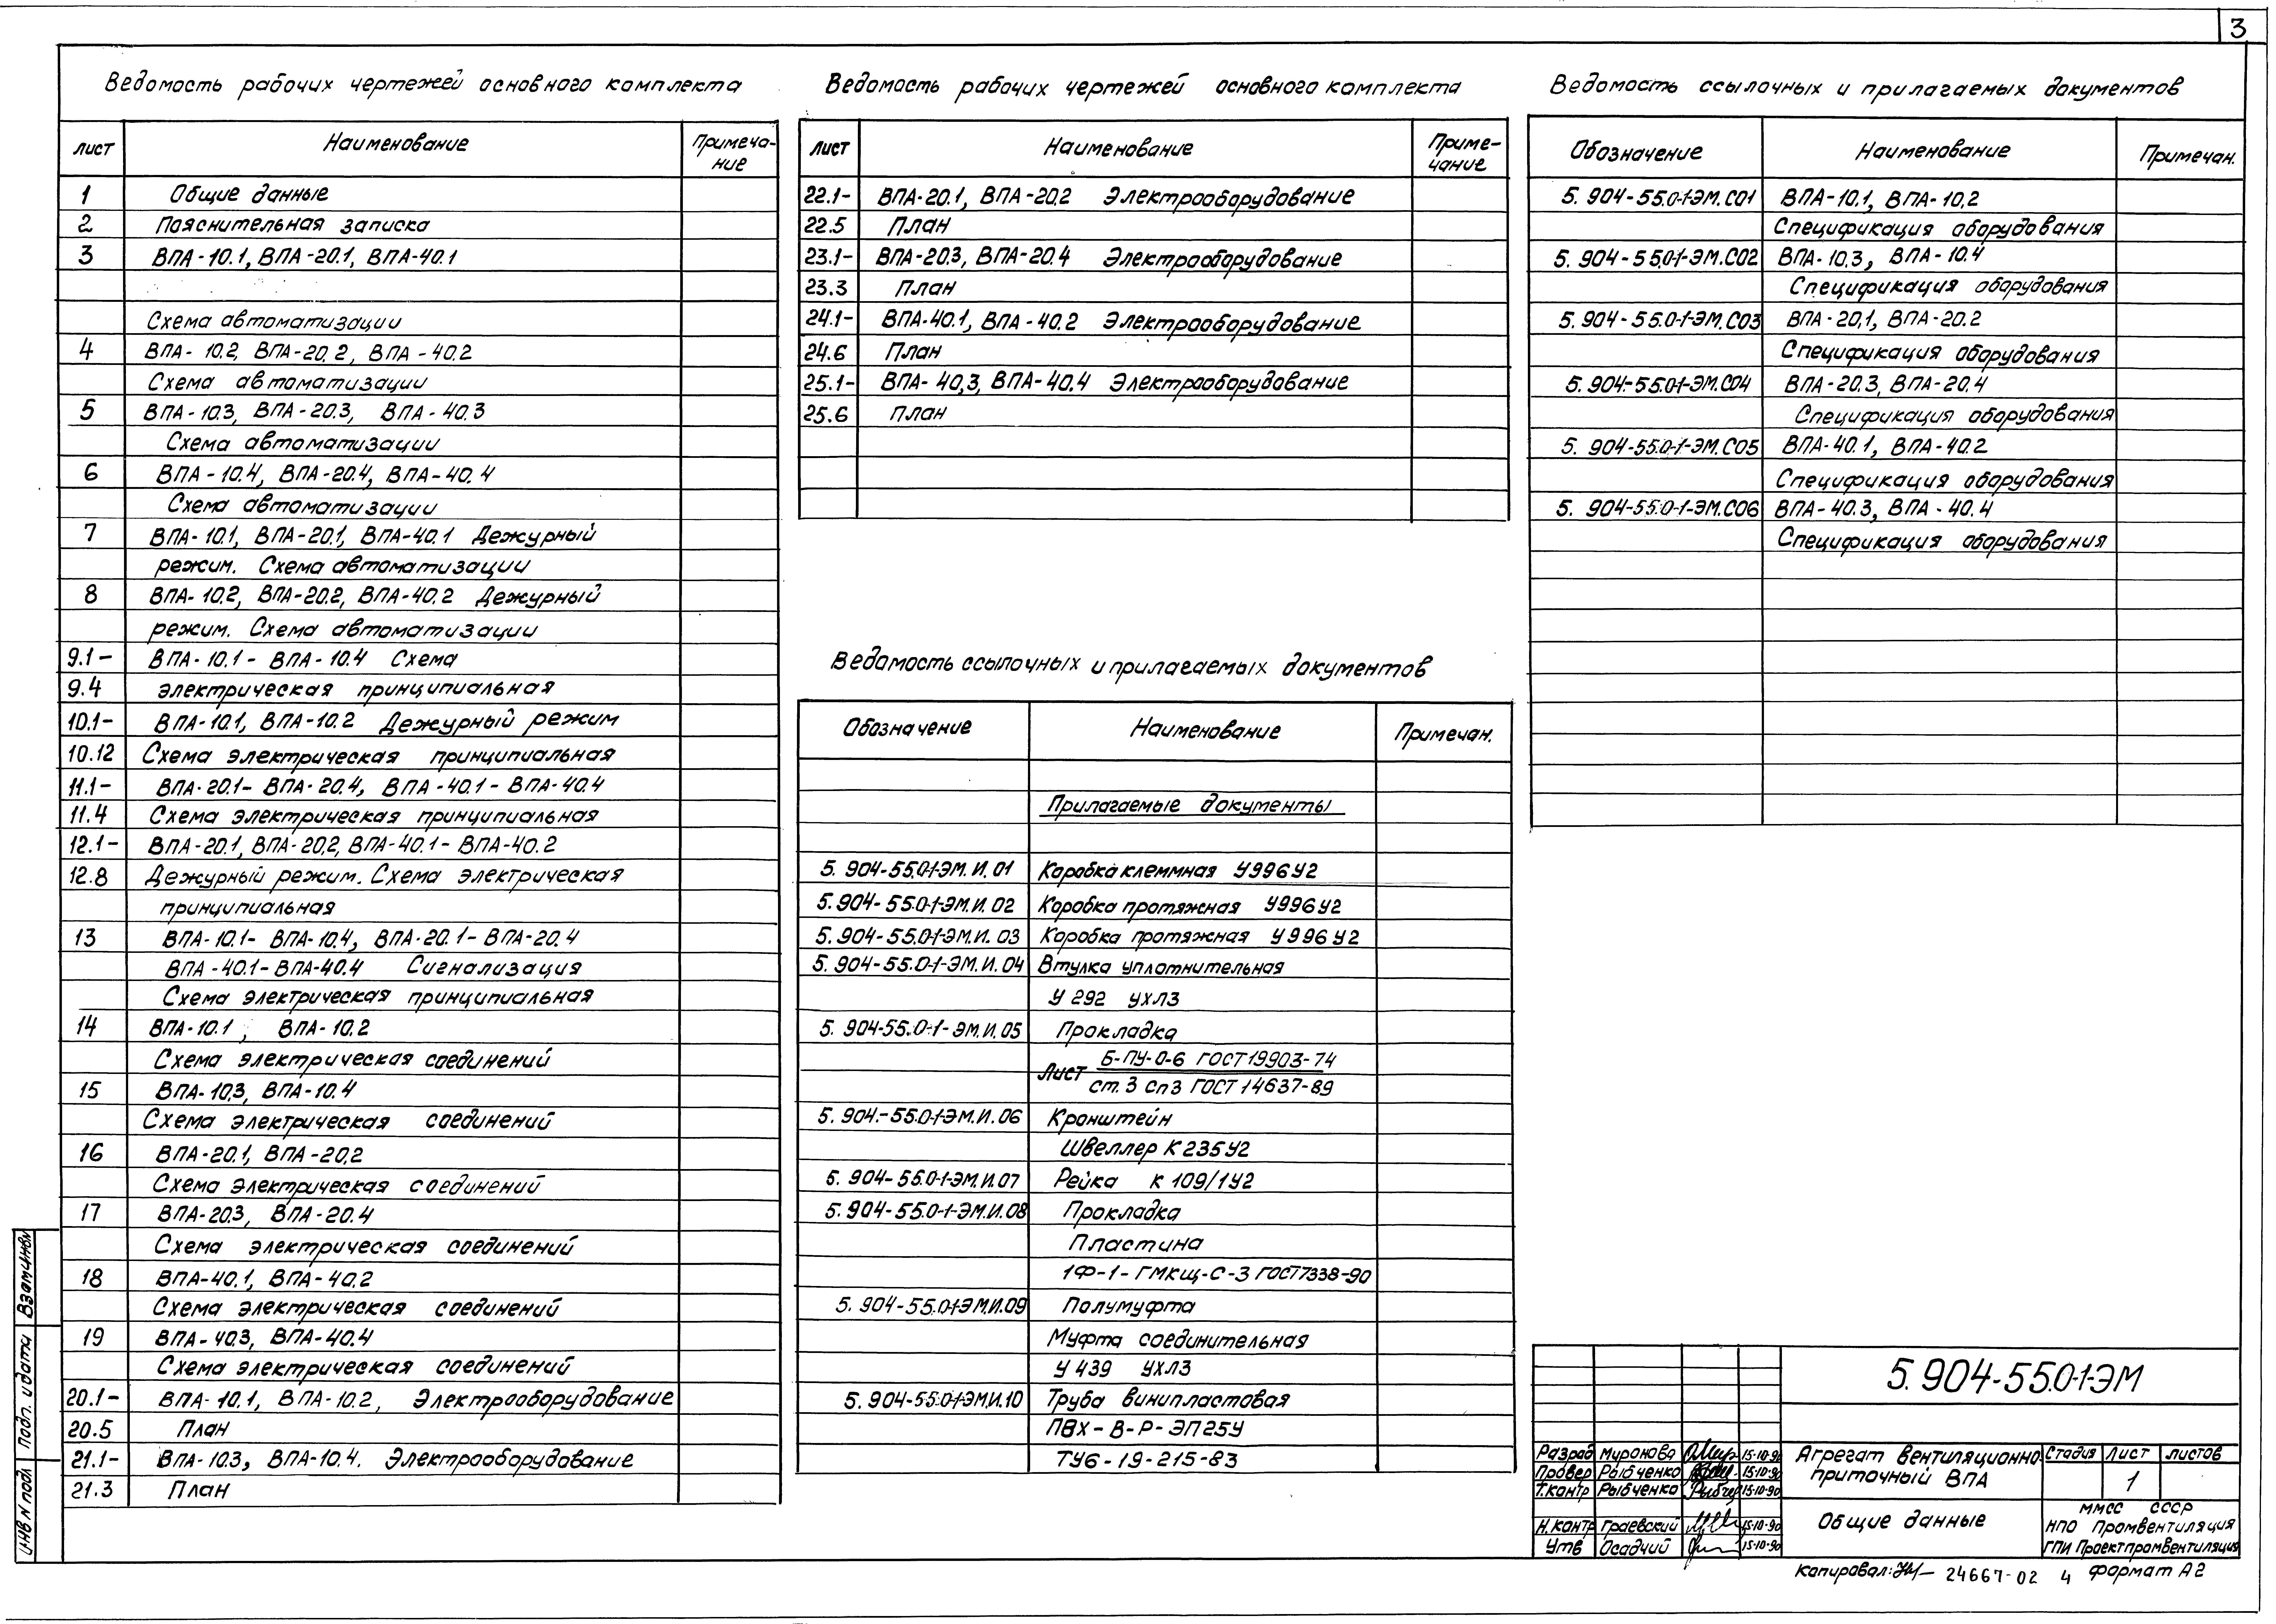 3
Ведомость рабочих чертежей основного комплекта
лист Наименование Примеча-
ние
1 Общие данные
2 Пояснительная записка
3 ВПА-10.1, ВПА-20.1, ВПА-40.1
Схема автоматизации
4 ВПА-10.2, ВПА-20.2, ВПА-40.2
Схема автоматизации
5 ВПА-10.3, ВПА-20.3, ВПА-40.3
Схема автоматизации
6 ВПА-10.4, ВПА-20.4, ВПА-40.4
Схема автоматизации
7 ВПА-10.1, ВПА-20.1, ВПА-40.1 Дежурный
режим. Схема автоматизации
8 ВПА-10.2, ВПА-20.2, ВПА-40.2 Дежурный
режим. Схема автоматизации
9.1- ВПА-10.1- ВПА-10.4 Схема
9.4 электрическая принципиальная
10.1- ВПА-10.1, ВПА-10.2 Дежурный режим
10.12 Схема электрическая принципиальная
11.1- ВПА-20.1- ВПА-20.4, ВПА-40.1- ВПА-40.4
11.4 Схема электрическая принципиальная
12.1- ВПА-20.1, ВПА-20.2, ВПА-40.1- ВПА-40.2
12.8 Дежурный режим. Схема электрическая
принципиальная
13 ВПА-10.1- ВПА-10.4, ВПА-20.1- ВПА-20.4
ВПА-40.1-ВПА-40.4 Сигнализация
Схема электрическая принципиальная
14 ВПА-10.1, ВПА-10.2
Схема электрическая соединений
15 ВПА-10.3, ВПА-10.4
Схема электрическая соединений
16 ВПА-20.1, ВПА-20.2
Схема электрическая соединений
17 ВПА-20.3, ВПА-20.4
Схема электрическая соединений
18 ВПА-40.1, ВПА-40.2
Схема электрическая соединений
19 ВПА-40.3, ВПА-40.4
Схема электрическая соединений
20.1- ВПА-10.1, ВПА-10.2, Электрооборудование
20.5 План
21.1- ВПА-10.3, ВПА-10.4. Электрооборудование
21.3 План
Ведомость рабочих чертежей основного комплекта
лист Наименование Приме-
чание
22.1- ВПА-20.1, ВПА-20.2 Электрооборудование
22.5 План
23.1- ВПА-20.3, ВПА-20.4 Электрооборудование
23.3 План
24.1- ВПА-40.1, ВПА-40.2 Электрооборудование
24.6 План
25.1- ВПА-40,3, ВПА-40.4 Электрооборудование
25.6 план
Ведомость ссылочных и прилагаемых документов
Обозначение Наименование Примечан.
Прилагаемые документы
5.904-55.0-1-ЭМ.И.01 Коробка клеммная У996У2
5.904-55.0-1-ЭМ.И.02 Коробка протяжная У996У2
5.904-55.0-1-ЭМ.И.03 Коробка протяжная У996У2
5.904-55.0-1-ЭМ.И.04 Втулка уплотнительная
У 292 УХЛ3
5.904-55.0-1-ЭМ.И.05 Прокладка
Лист Б-ПУ-0-6 ГОСТ 19903-74
ст.3 сп3 ГОСТ 14637-89
5.904-55.0-1-ЭМ.И.06 Кронштейн
Швеллер К235У2
5.904-55.0-1-ЭМ.И.07 Рейка К 109/1У2
5.904-55.0-1-ЭМ.И.08 Прокладка
Пластина
1Ф-1-ГМКЩ-С-3 ГОСТ 7338-90
5.904-55.0-1-ЭМ.И.09 Полумуфта
Муфта соединительная
У 439 УХЛ3
5.904-55.0-1-ЭМ.И.10 Труба винипластовая
ПВХ-В-Р-ЭП25У
ТУ6-19-215-83
Ведомость ссылочных и прилагаемых документов
Обозначение Наименование Примечан.
5.904-55.0-1-ЭМ.С01 ВПА-10.1, ВПА-10.2
Спецификация оборудования
5.904-55.0-1-ЭМ.С02 ВПА-10.3, ВПА-10.4
Спецификация оборудования
5.904-55.0-1-ЭМ.С03 ВПА-20.1, ВПА-20.2
Спецификация оборудования
5.904-55.0-1-ЭМ.С04 ВПА-20.3, ВПА-20.4
Спецификация оборудования
5.904-55.0-1-ЭМ.С05 ВПА-40.1, ВПА-40.2
Спецификация оборудования
5.904-55.0-1-ЭМ.С06 ВПА-40.3, ВПА-40.4
Спецификация оборудования
5.904-55.0-1-ЭМ
Разраб Миронова 15-10-90
Провер Рыбченко 15-10-90
Т.контр Рыбченко 15-10-90
Н.контр Граевский 15-10-90
Утв Осадчий 15-10-90
Агрегат вентиляционно
приточный ВПА
Стадия Лист Листов
1
Общие данные
ММСС СССР
НПО Промвентиляция
ГПИ Проектпромвентиляция
Копировал: 24667-02 4 Формат А2
Взам инв N
Подп. и дата
Инв N подл